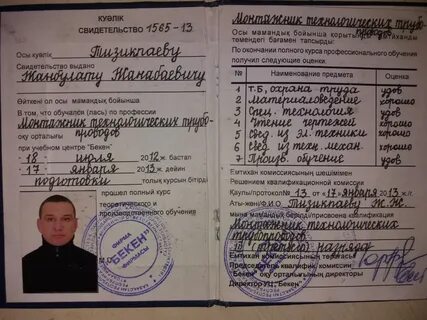 КУӘЛІК
СВИДЕТЕЛЬСТВО 1565-13
Осы куәлік Тизикпаеву
Свидетельство выдано
Жанбулату Жанабаевичу
Өйткені ол осы мамандық бойынша
В том, что обучался (лась) по профессии
Монтажник технологических трубо-
проводов
оқу орталығы
при учебном центре "Бекен"
18 июля 2012ж. бастап
17 января 2013ж. дейін
подготовки толық курсын бітірді
прошел полный курс
теоретического и
производственного обучения
ФИРМА
"БЕКЕН"
ФИРМАСЫ
М.О.
Монтажник технологических трубо-
проводов
Осы мамандық бойынша
төмендегі бағамен тапсырды:
По окончании полного курса профессионального обучения
получил следующие оценки:
№ Наименование предмета Оценка
1 Т.Б, охрана труда удов
2 Материаловедение хорошо
3 Спец. технология удов
4 Чтение чертежей хорошо
5 Свед. из эл. техники хорошо
6 Свед. из тех. механ. хорошо
7 Произв. обучение удов
Емтихан комиссиясының шешімімен
Решением квалификационной комиссии
Қаулы/протокол № 13 от «17» января 2013 ж/г.
Аты-жөні/Ф.И.О Тизикпаеву Ж.Ж.
мына мамандық бойынша/присвоена квалификация
Монтажник технологических
трубопроводов.
разряда
Емтихан комиссиясының төрағасы
Председатель квалифик. комиссии
"Бекен" оқу орталығының директоры
Директор УЦ "Бекен"
"БЕКЕН"